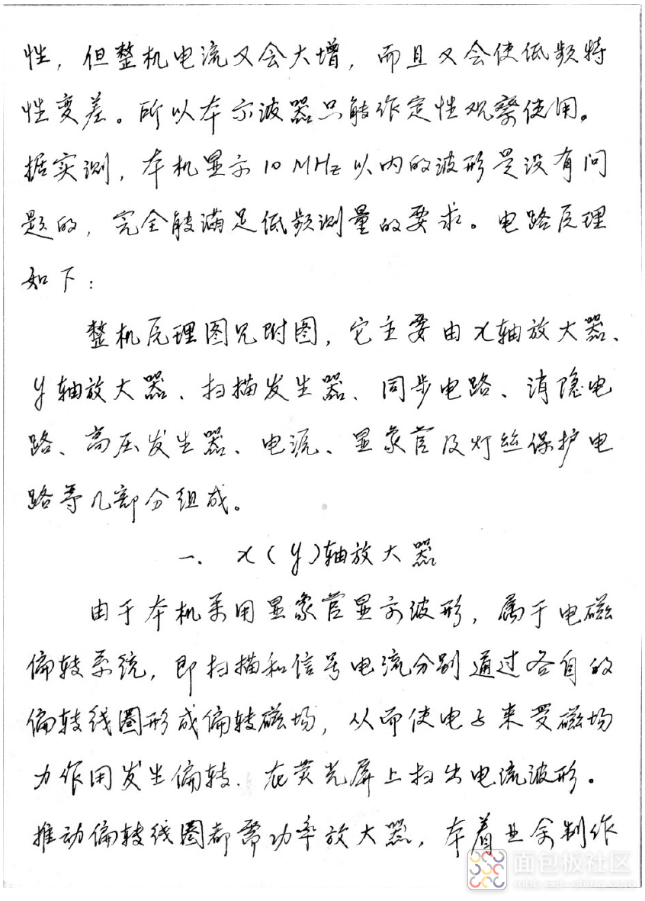 性，但整机电流又会大增，而且又会使低频特
性变差。所以本示波器只能作定性观察使用。
据实测，本机显示10MHz以内的波形是没有问
题的，完全能满足低频测量的要求。电路原理
如下：
整机原理图见附图，它主要由x轴放大器、
y轴放大器、扫描发生器、同步电路、消隐电
路、高压发生器、电源、显象管及灯丝保护电
路等几部分组成。
一、x(y)轴放大器
由于本机采用显象管显示波形，属于电磁
偏转系统，即扫描和信号电流分别通过各自的
偏转线圈形成偏转磁场，从而使电子束受磁场
力作用发生偏转．在荧光屏上扫出电流波形。
推动偏转线圈都需功率放大器，本着业余制作
面包板社区
mbb.eet-china.com